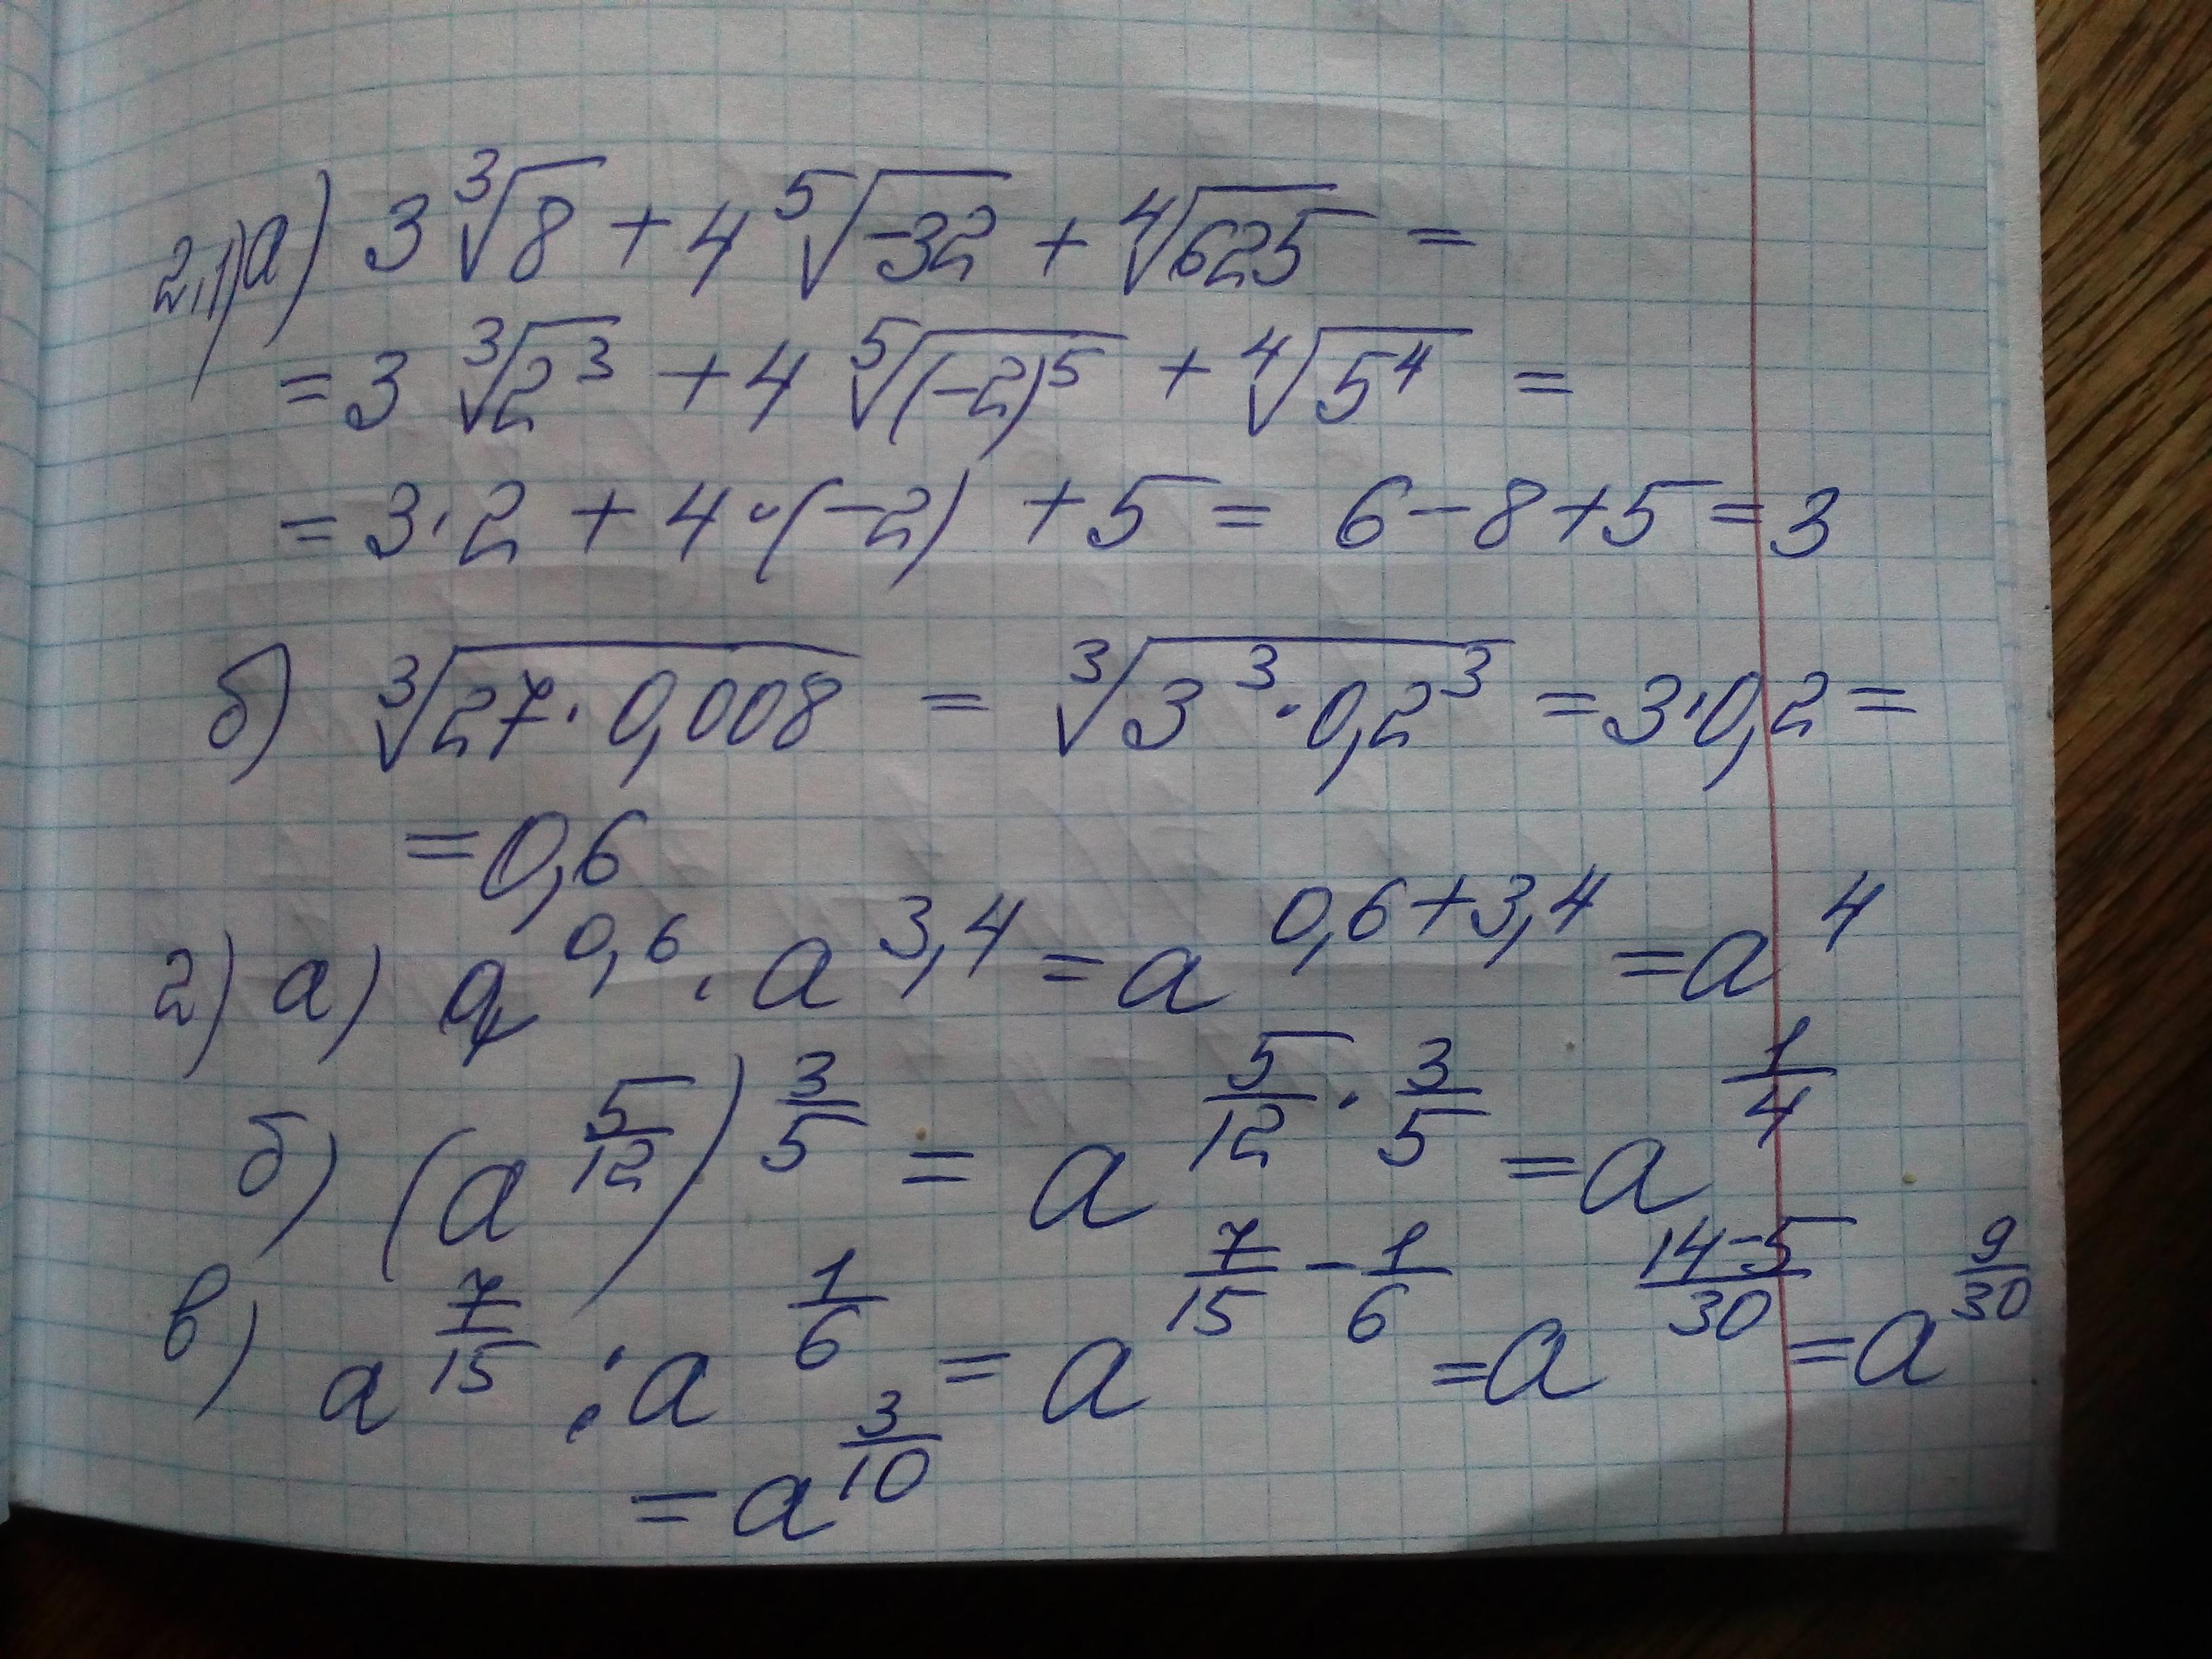 2,1) а) 3∛8 + 4⁵√-32 + ⁴√625 =
= 3 ∛2³ + 4 ⁵√(-2)⁵ + ⁴√5⁴ =
= 3·2 + 4·(-2) + 5 = 6-8+5=3
б) ∛27·0,008 = ∛3³·0,2³ = 3·0,2 =
= 0,6
2) а) a^0,6 · a^3,4 = a^0,6+3,4 = a^4
б) (a^5/12)^3/5 = a^5/12·3/5 = a^1/4
в) a^7/15 : a^1/6 = a^7/15-1/6 = a^14-5/30 = a^9/30
= a^3/10